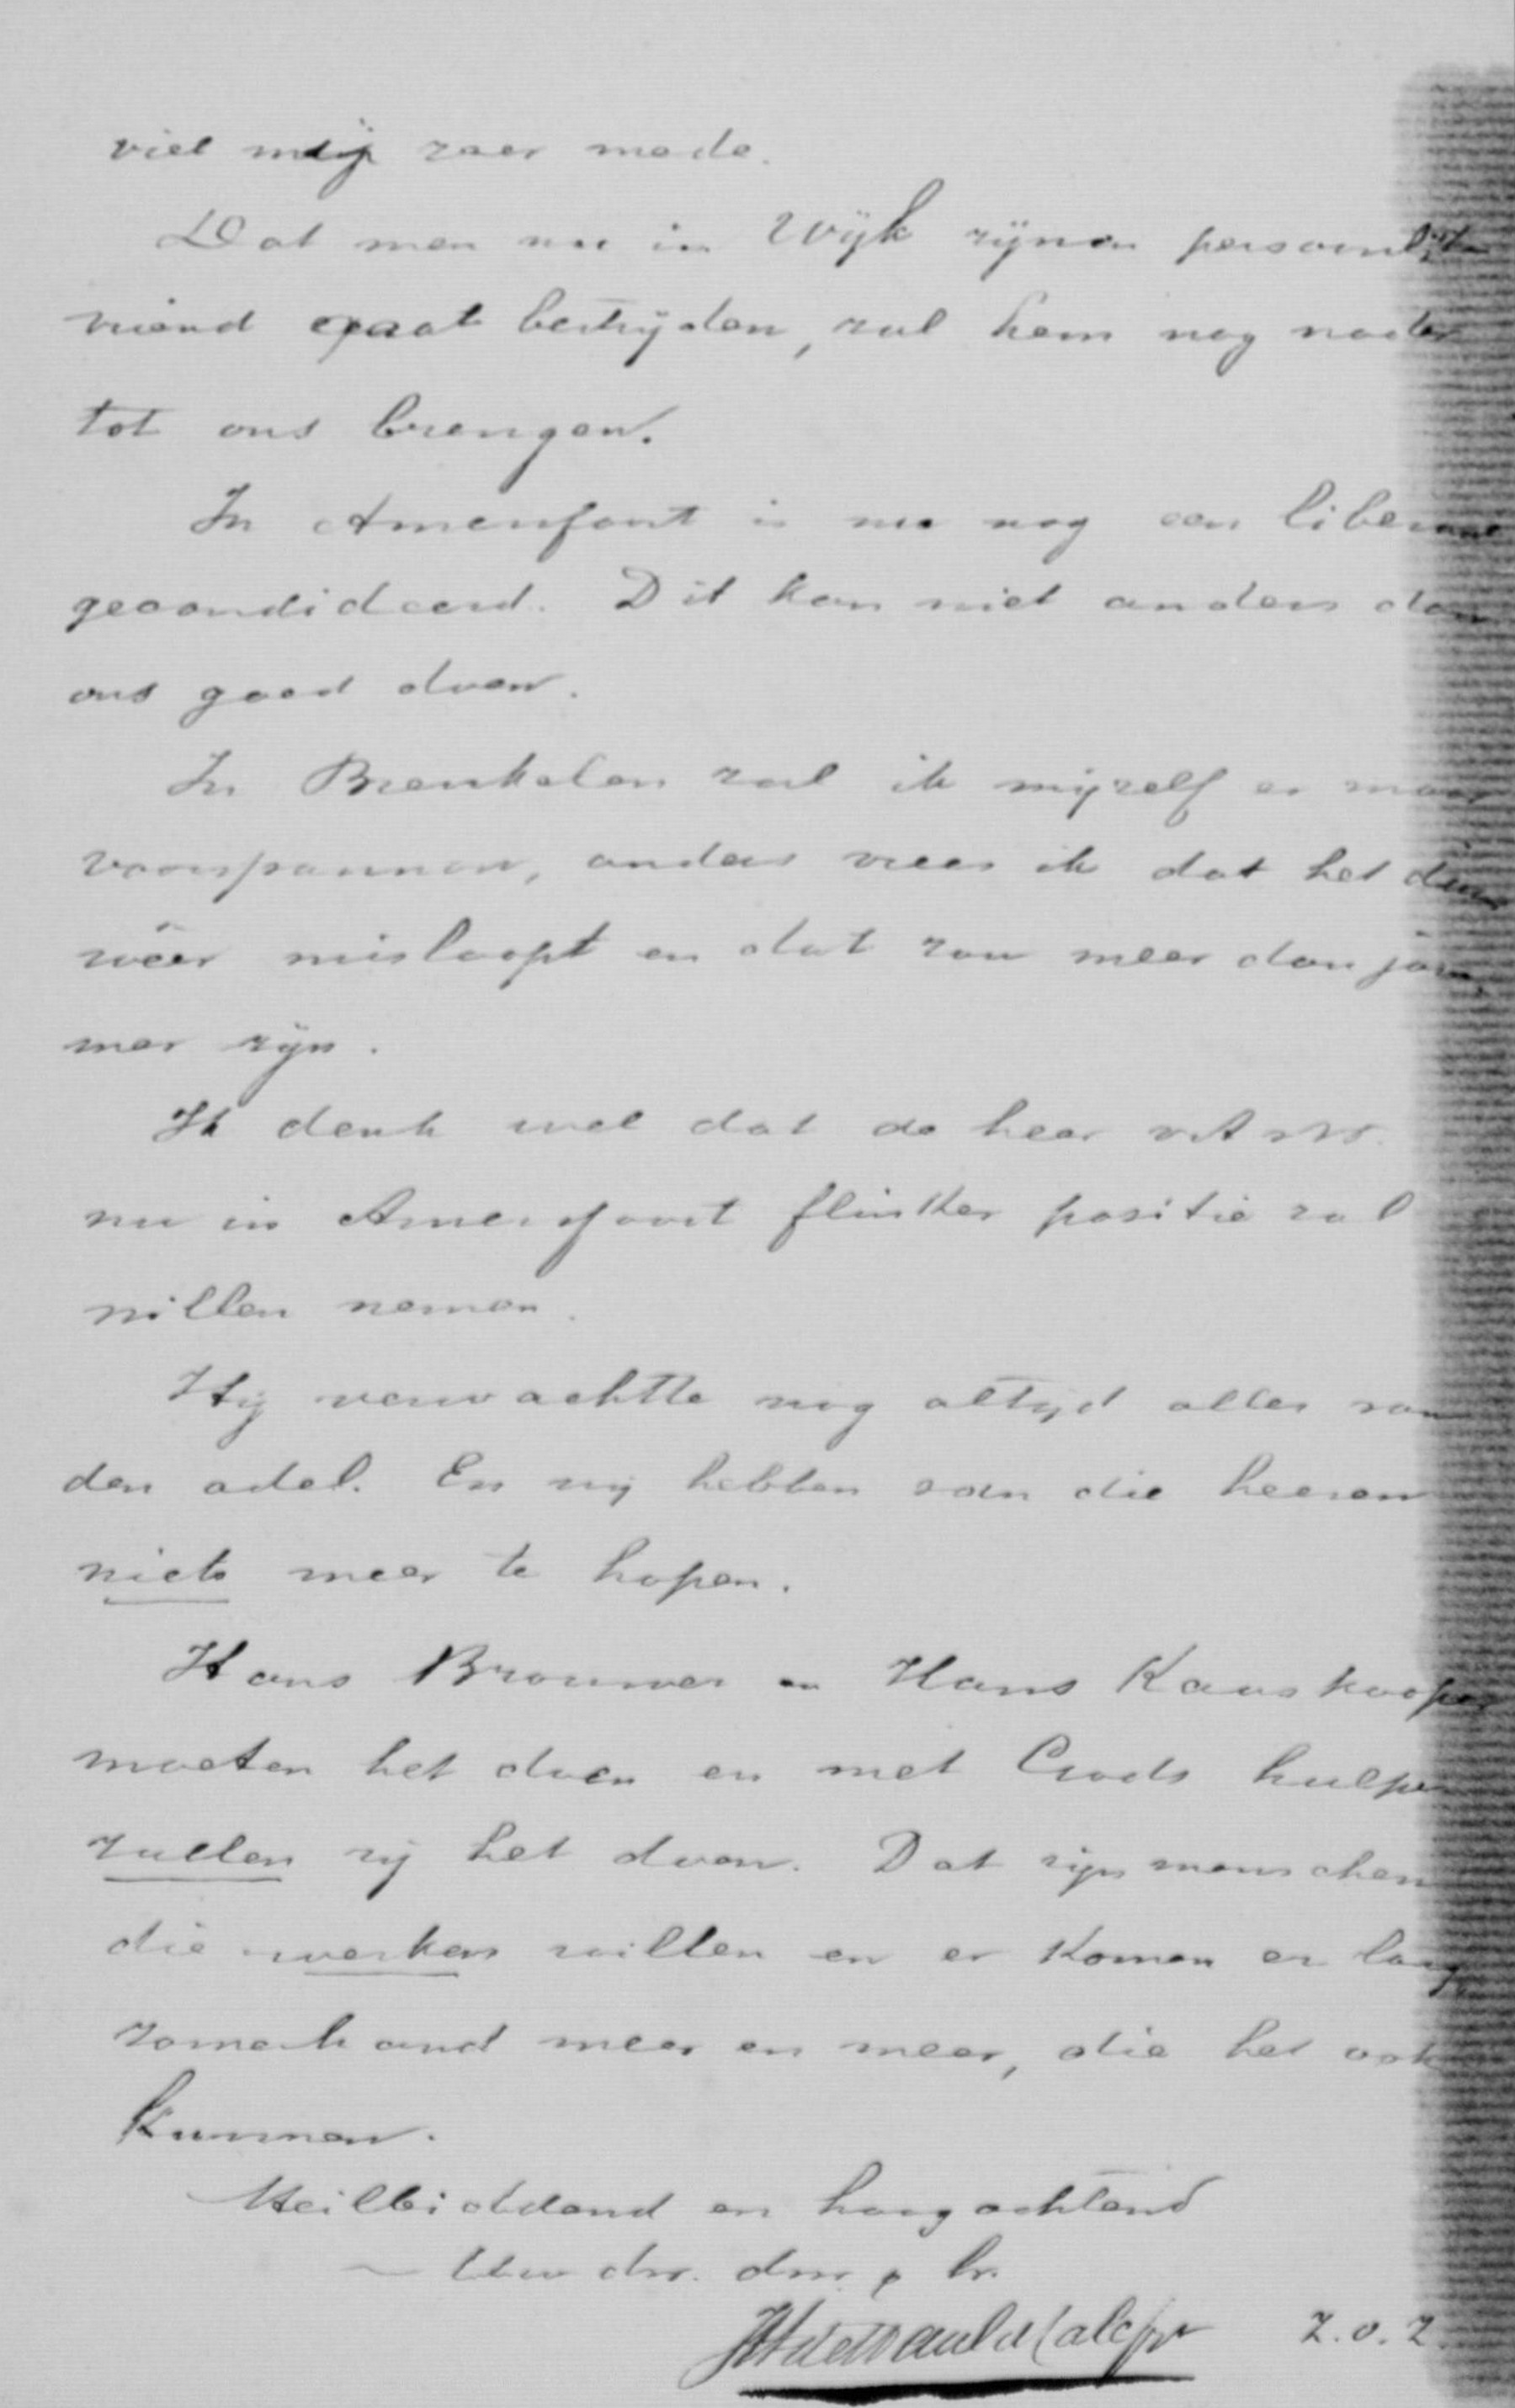 viel mij zeer mede.
Dat men nu in Wijk zijnen persoonlijken
vriend gaat bestrijden, zal hem nog nader
tot ons brengen.
In Amersfoort is nu nog een liberaal
gecandideerd. Dit kan niet anders dan
ons goed doen.
In Breukelen zal ik mijzelf er maar
voorspannen, anders vrees ik dat het
wéér misloopt en dat zou meer dan jam
mer zijn.
Ik denk wel dat de heer v A v W.
nu in Amersfoort flinker positie zal
willen nemen.
Hij verwachtte nog altijd alles van
den adel. En wij hebben van die heeren
niets meer te hopen.
Hans Brouwer en Hans Kaaskooper
moeten het doen en met Gods hulpe
zullen zij het doen. Dat zijn menschen
die werken willen en er komen er lang
zamerhand meer en meer, die het ook
kunnen.
Heilbiddend en hoogachtend
Uw dw. dnr. & br.
Z.O.Z.